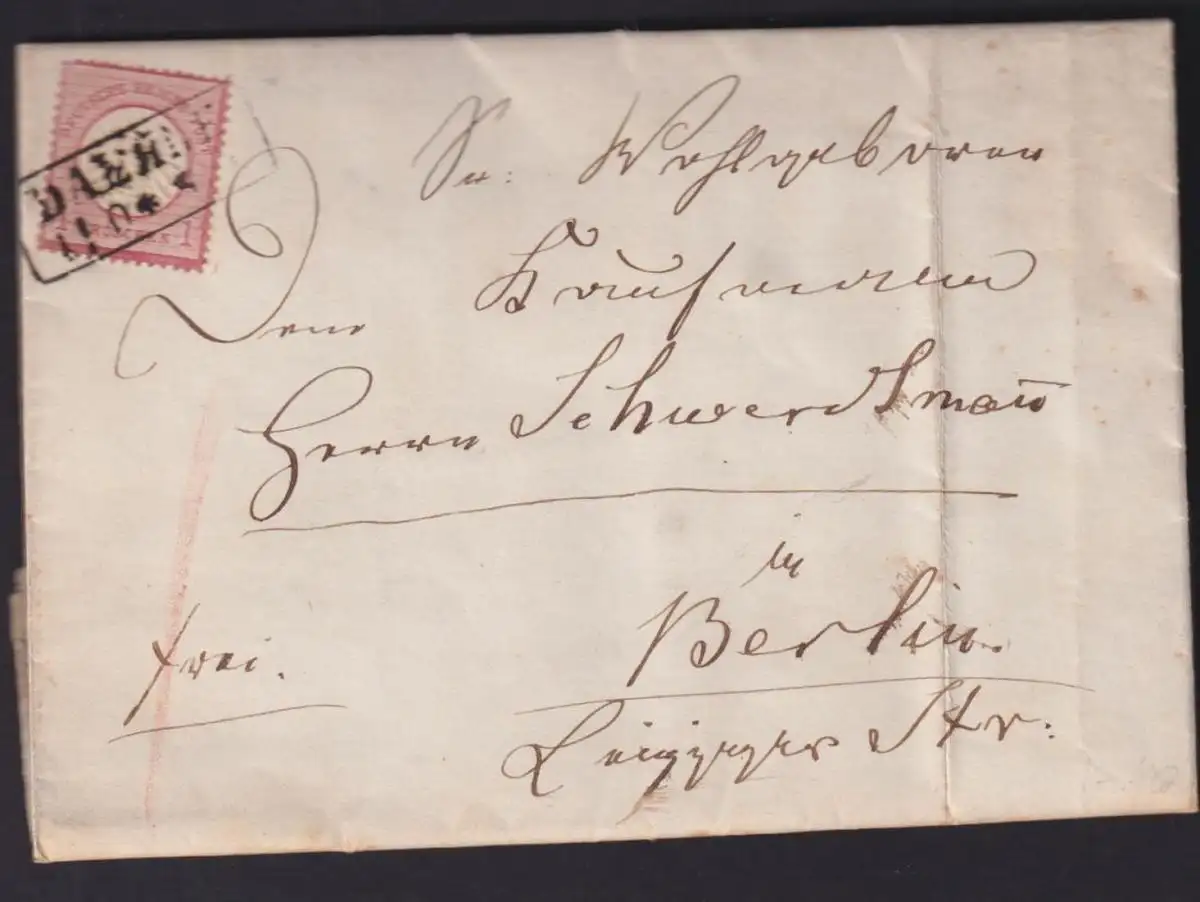 Sr: Wohlgeboren
Dem Kaufmann
Herrn Schwerdtmañ
in
Berlin.
frei.
Leipziger Str: